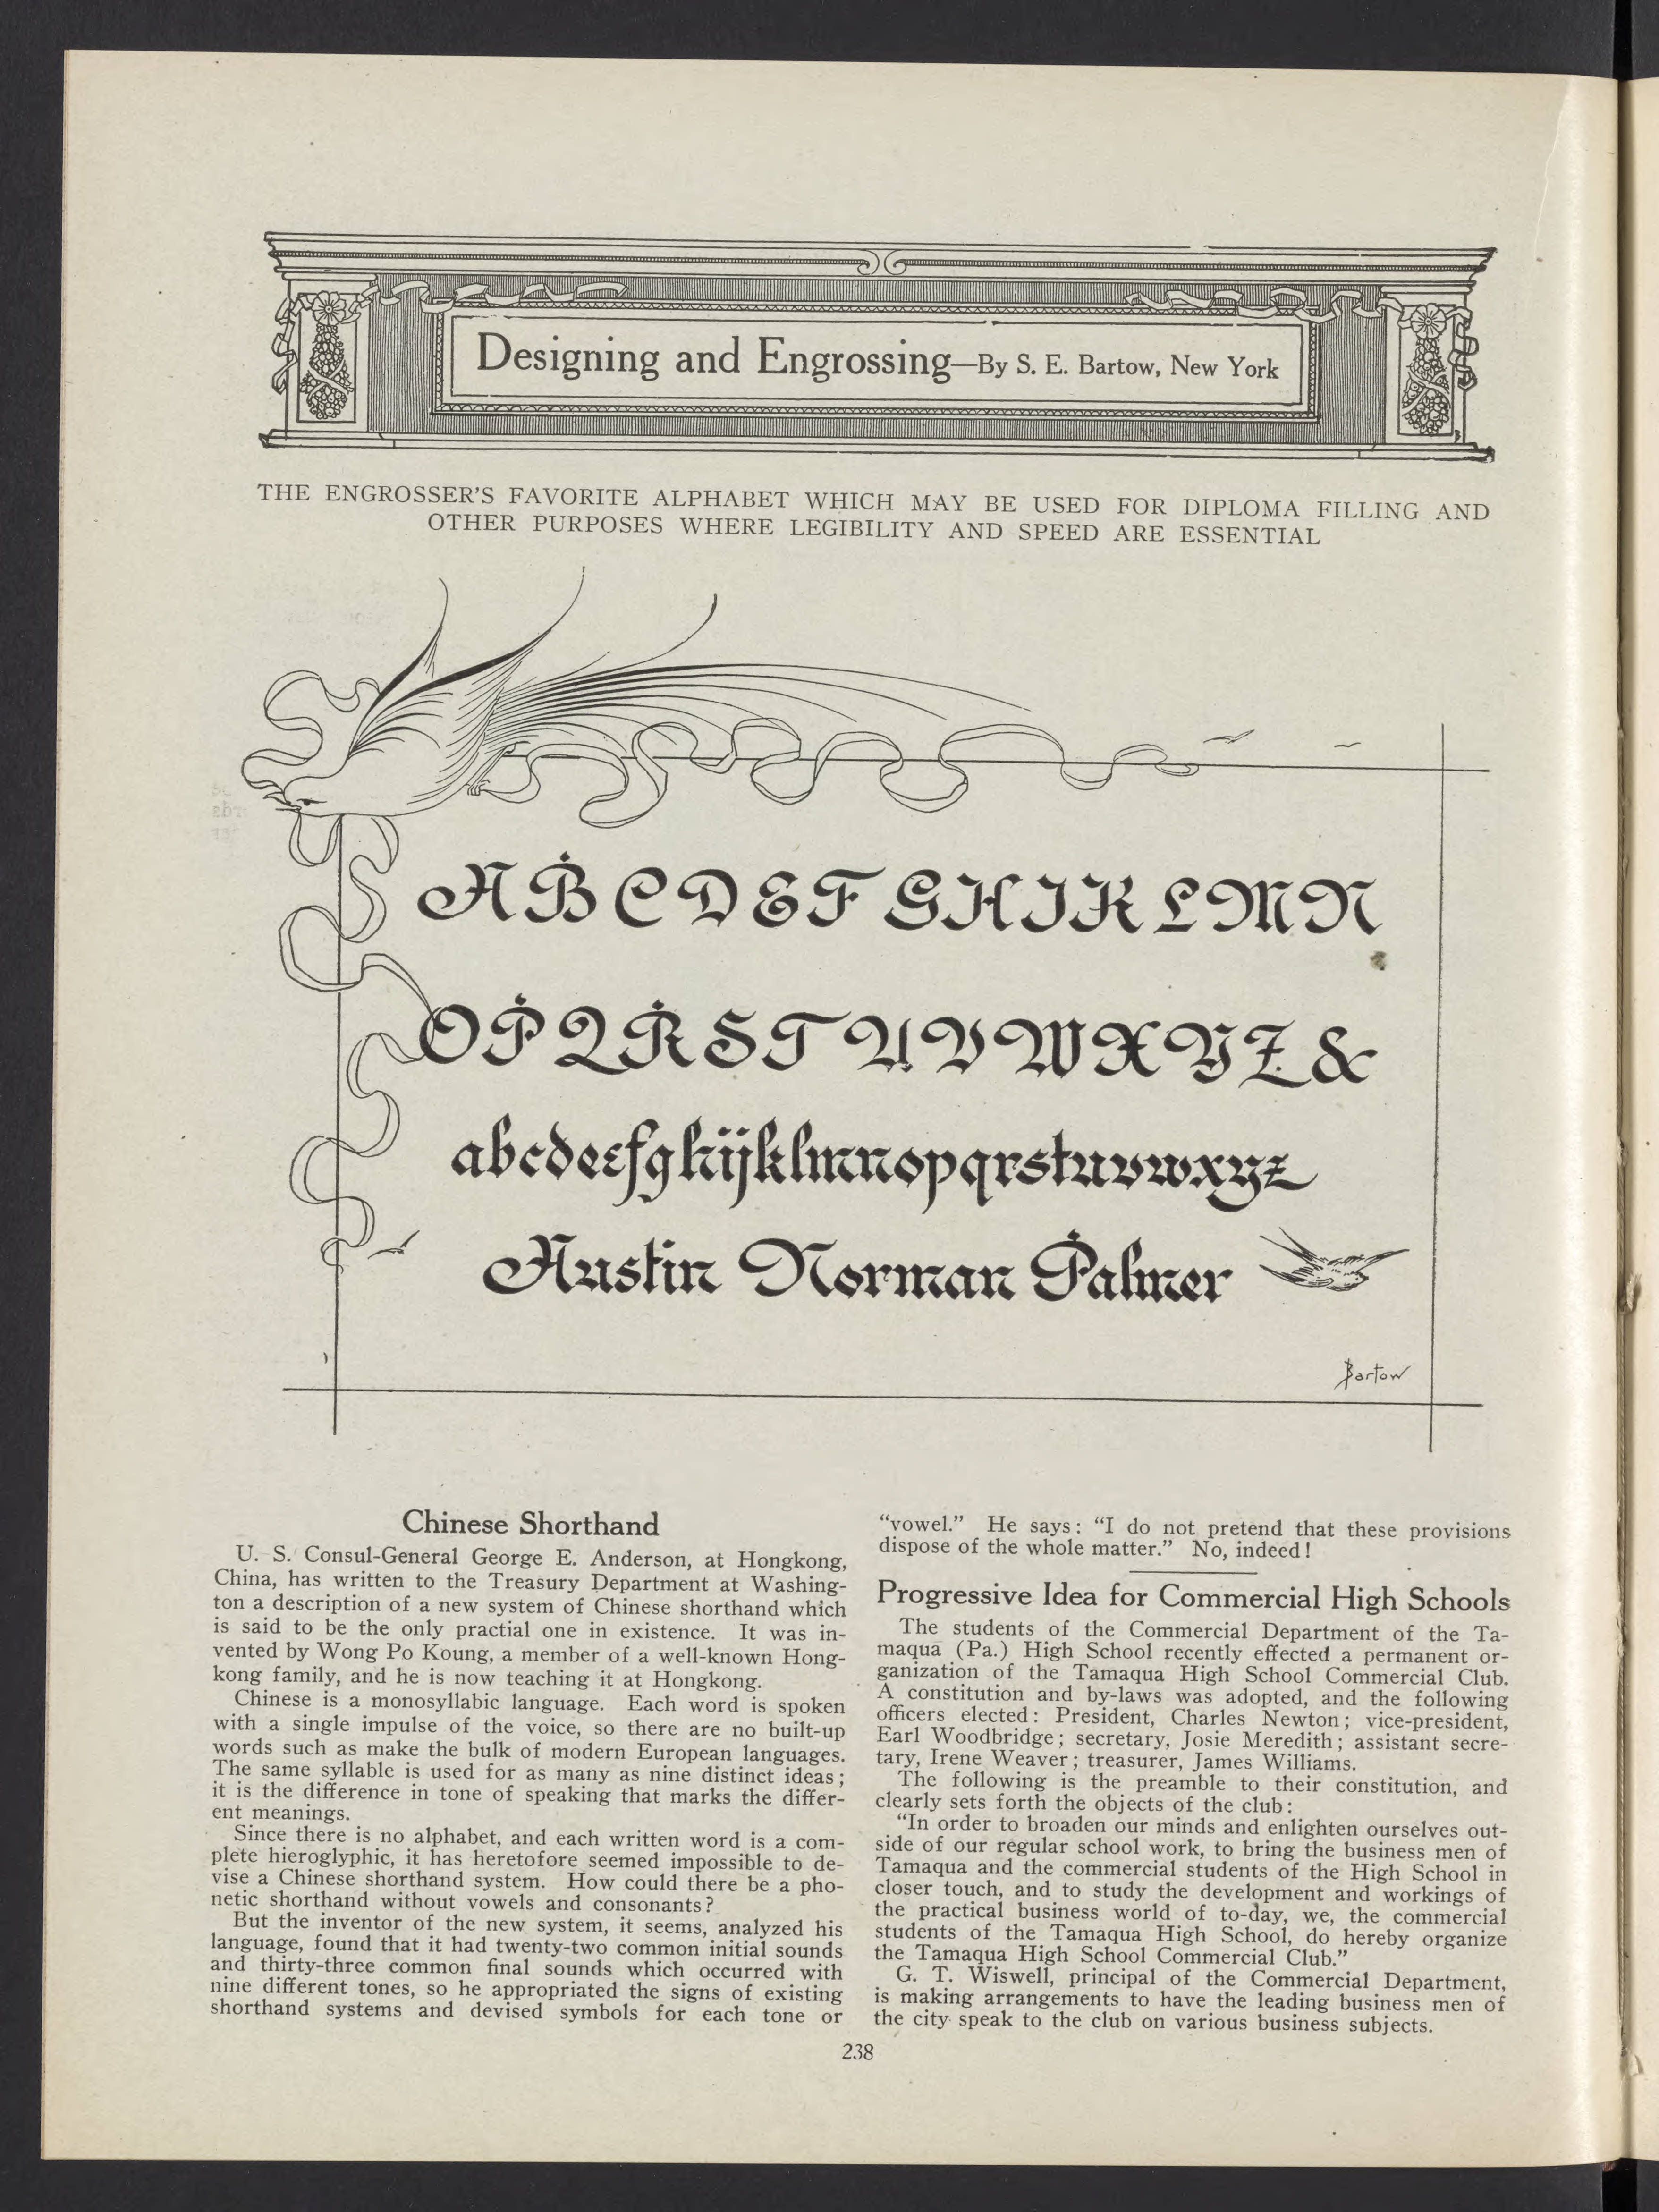 Designing and Engrossing—By S. E. Bartow, New York
THE ENGROSSER'S FAVORITE ALPHABET WHICH MAY BE USED FOR DIPLOMA FILLING AND
OTHER PURPOSES WHERE LEGIBILITY AND SPEED ARE ESSENTIAL
A B C D E F G H I K L M N
O P Q R S T U V W X Y Z &
abcdeefghijklmnopqrstuvwxyz
Austin Norman Palmer
Bartow
Chinese Shorthand
U. S. Consul-General George E. Anderson, at Hongkong,
China, has written to the Treasury Department at Washing-
ton a description of a new system of Chinese shorthand which
is said to be the only practial one in existence. It was in-
vented by Wong Po Koung, a member of a well-known Hong-
kong family, and he is now teaching it at Hongkong.
Chinese is a monosyllabic language. Each word is spoken
with a single impulse of the voice, so there are no built-up
words such as make the bulk of modern European languages.
The same syllable is used for as many as nine distinct ideas;
it is the difference in tone of speaking that marks the differ-
ent meanings.
Since there is no alphabet, and each written word is a com-
plete hieroglyphic, it has heretofore seemed impossible to de-
vise a Chinese shorthand system. How could there be a pho-
netic shorthand without vowels and consonants?
But the inventor of the new system, it seems, analyzed his
language, found that it had twenty-two common initial sounds
and thirty-three common final sounds which occurred with
nine different tones, so he appropriated the signs of existing
shorthand systems and devised symbols for each tone or
"vowel." He says: "I do not pretend that these provisions
dispose of the whole matter." No, indeed!
Progressive Idea for Commercial High Schools
The students of the Commercial Department of the Ta-
maqua (Pa.) High School recently effected a permanent or-
ganization of the Tamaqua High School Commercial Club.
A constitution and by-laws was adopted, and the following
officers elected: President, Charles Newton; vice-president,
Earl Woodbridge; secretary, Josie Meredith; assistant secre-
tary, Irene Weaver; treasurer, James Williams.
The following is the preamble to their constitution, and
clearly sets forth the objects of the club:
"In order to broaden our minds and enlighten ourselves out-
side of our regular school work, to bring the business men of
Tamaqua and the commercial students of the High School in
closer touch, and to study the development and workings of
the practical business world of to-day, we, the commercial
students of the Tamaqua High School, do hereby organize
the Tamaqua High School Commercial Club."
G. T. Wiswell, principal of the Commercial Department,
is making arrangements to have the leading business men of
the city speak to the club on various business subjects.
238